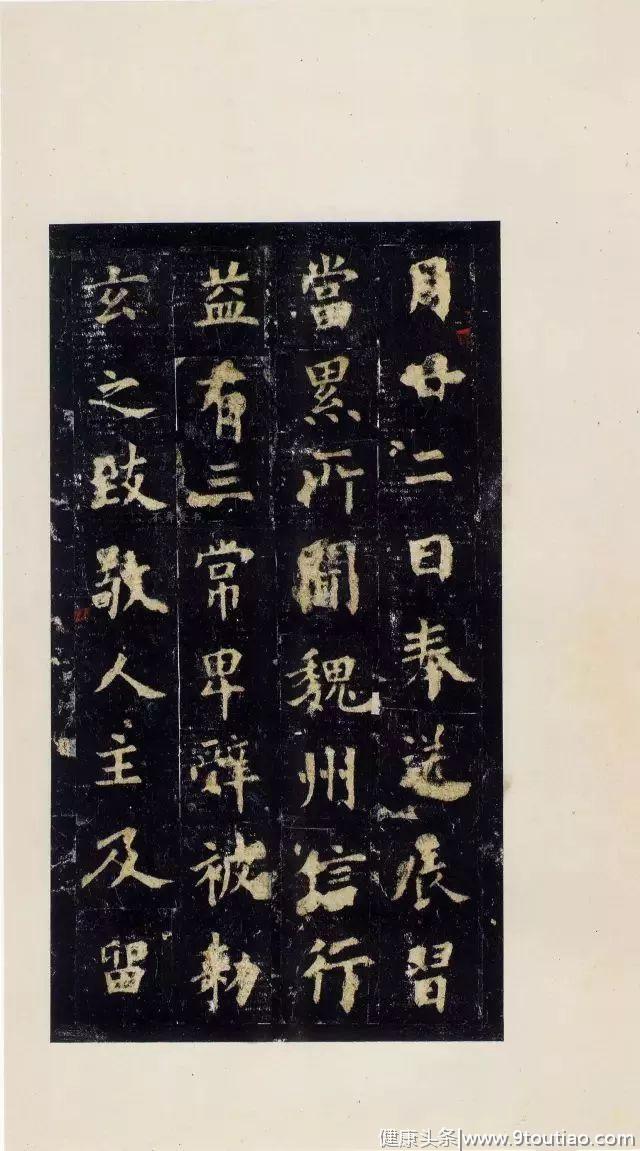 月廿二日奉送展習
當累所聞魏州信行
益有三常卑辭被勅
玄之致敬人主及留
健康头条|www.9toutiao.com